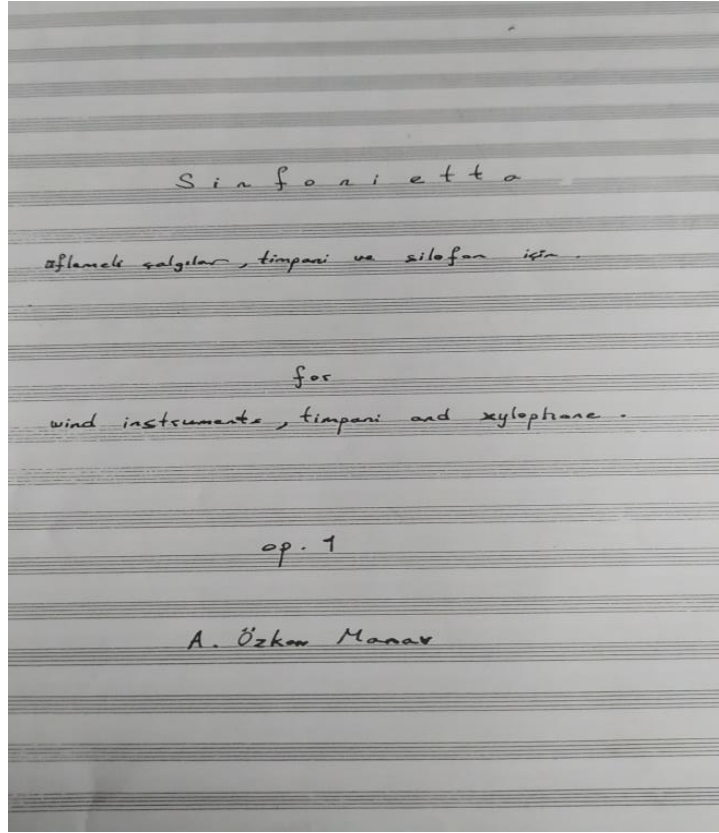 Sinfonietta
üflemeli çalgılar, timpani ve silofon için.
for
wind instruments, timpani and xylophone.
op. 1
A. Özkan Manav